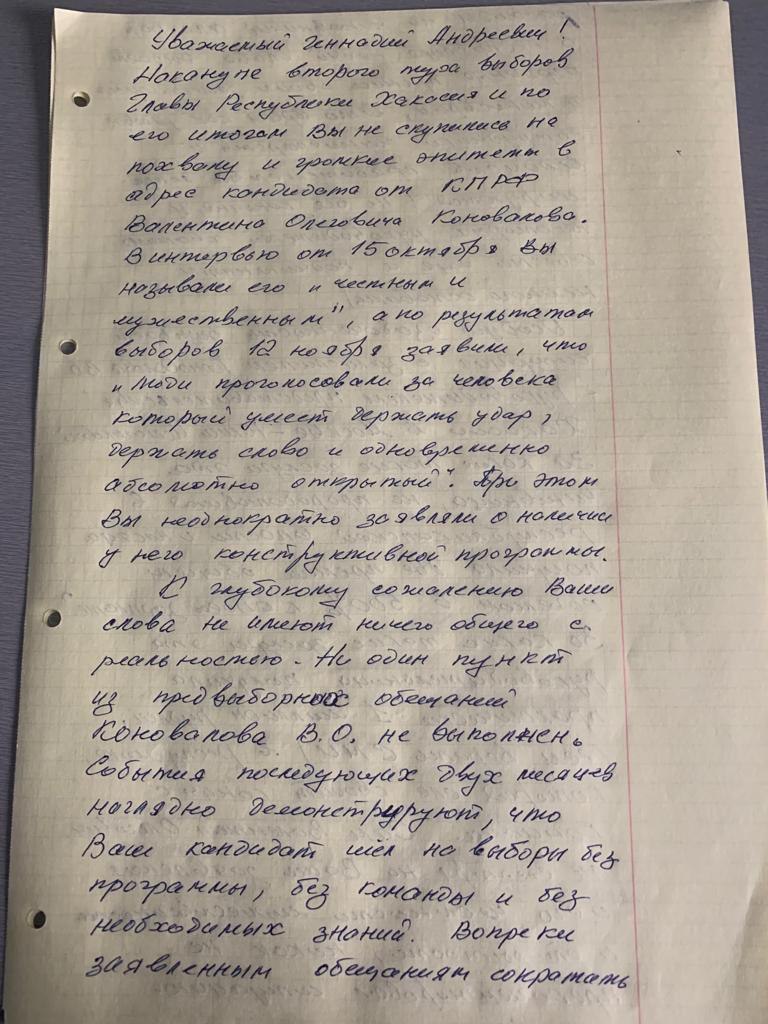 Уважаемый Геннадий Андреевич!
Накануне второго тура выборов
Главы Республики Хакасия и по
его итогам Вы не скупились на
похвалу и громкие эпитеты в
адрес кандидата от КПРФ
Валентина Олеговича Коновалова.
В интервью от 15 октября Вы
называли его „честным и
мужественным", а по результатам
выборов 12 ноября заявили, что
„Люди проголосовали за человека
который умеет держать удар,
держать слово и одновременно
абсолютно открытый". При этом
Вы неоднократно заявляли о наличии
у него конструктивной программы.
К глубокому сожалению Ваши
слова не имеют ничего общего с
реальностью. Ни один пункт
из предвыборных обещаний
Коновалова В.О. не выполнен.
События последующих двух месяцев
наглядно демонстрируют, что
Ваш кандидат шёл на выборы без
программы, без команды и без
необходимых знаний. Вопреки
заявленным обещаниям сократать